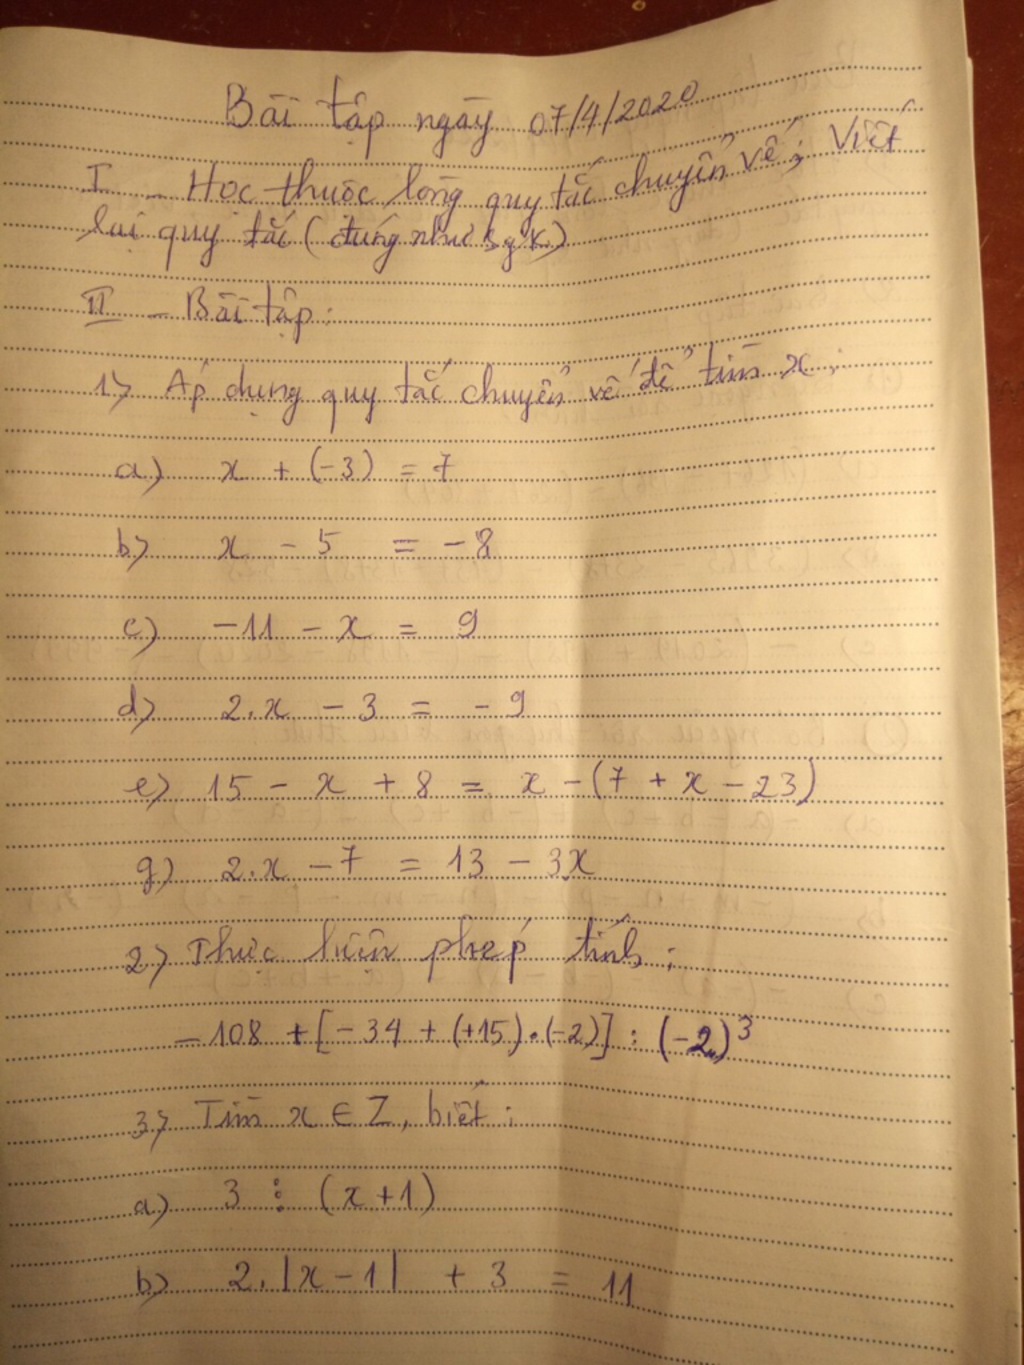 Bài tập ngày 07/4/2020
I - Học thuộc lòng quy tắc chuyển vế; Viết
lại quy tắc (đúng như sgk)
II - Bài tập:
1> Áp dụng quy tắc chuyển vế để tìm x:
a) x + (-3) = 7
b) x - 5 = -8
c) -11 - x = 9
d) 2.x - 3 = -9
e) 15 - x + 8 = x - (7 + x - 23)
g) 2.x - 7 = 13 - 3x
2> Thực hiện phép tính:
-108 + [-34 + (+15).(-2)] : (-2)³
3> Tìm x ∈ Z, biết:
a) 3 ⋮ (x+1)
b) 2.|x-1| + 3 = 11